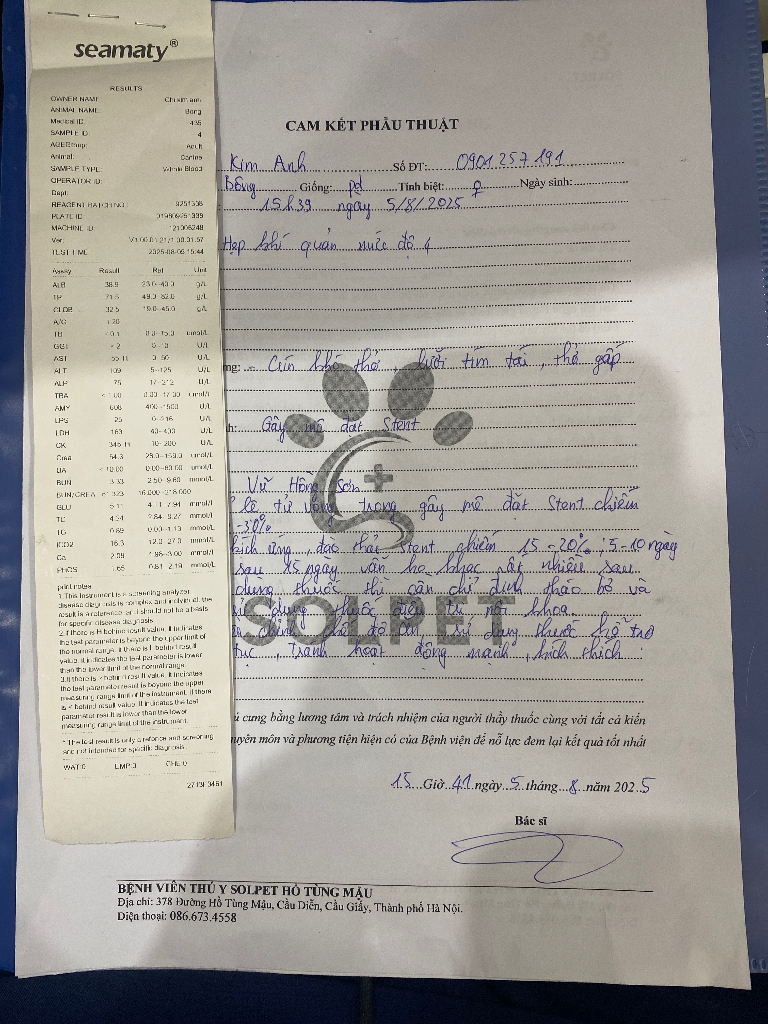 seamaty®
RESULTS
OWNER NAME
ANIMAL NAME Bong
Medical ID 435
SAMPLE ID 4
AGEGroup: Adult
Animal: Canine
SAMPLE TYPE: Whole Blood
OPERATOR ID:
Dept:
REAGENT BATCH NO.:
PLATE ID:
MACHINE ID:
Ver:
TEST TIME 15:44
Assay Result Ref Unit
ALB 38.9 g/L
TP g/L
GLOB 32.5 g/L
A/G 1.20
TB umol/L
GGT < 2 U/L
AST 55 H 0-50 U/L
ALT 109 5-125 U/L
ALP 75 17-212 U/L
TBA umol/L
AMY 608 400-1500 U/L
LPS 25 U/L
LDH 163 40-400 U/L
CK 345 H 10-200 U/L
Crea 54.3 umol/L
UA < 10.00 umol/L
BUN 3.33 2.50-9.60 mmol/L
BUN/CREA
GLU 5.11 mmol/L
TC 4.54 mmol/L
TG 0.69 mmol/L
tCO2 16.3 mmol/L
Ca 2.58 mmol/L
PHOS 1.65 mmol/L
print notes
1. This instrument is a screening analyzer,
disease diagnosis is complex and individual, the
result is a reference and should not be a basis
for specific disease diagnosis.
2. If there is H behind result value, it indicates
the test parameter is beyond the upper limit of
the normal range. If there is L behind result
value, it indicates the test parameter is lower
than the lower limit of the normal range.
3. If there is > behind result value, it indicates
the test parameter result is beyond the upper
measuring range limit of the instrument. If there
is < behind result value, it indicates the test
parameter result is lower than the lower
measuring range limit of the instrument.
* The test result is only a reference and screening
and not intended for specific diagnosis.
WAT:0 LMP:0 CHE:0
CAM KẾT PHẪU THUẬT
Kim Anh Số ĐT: 0901257191
Bông Giống: pd Tính biệt: ♀ Ngày sinh:
15h39 ngày 5/8/2025
Hẹp khí quản mức độ 4
ng: - Cún khó thở, lưỡi tím tái, thở gấp
h: Gây mê đặt Stent
Vũ Hồng Sơn
lệ tử vong trong gây mê đặt Stent chiếm
-30%
kích ứng, đào thải stent chiếm 15-20%, 5-10 ngày
sau 15 ngày vẫn ho khạc rất nhiều sau
dùng thuốc thì cần chỉ định tháo bỏ và
sử dụng thuốc điều trị nội khoa.
chỉnh chế độ ăn, sử dụng thuốc hỗ trợ
tục, tránh hoạt động mạnh, kích thích
SOLPET
ú cưng bằng lương tâm và trách nhiệm của người thầy thuốc cùng với tất cả kiến
uyên môn và phương tiện hiện có của Bệnh viện để nỗ lực đem lại kết quả tốt nhất
15 Giờ 41 ngày 5 tháng 8 năm 2025
Bác sĩ
BỆNH VIỆN THÚ Y SOLPET HỒ TÙNG MẬU
Địa chỉ: 378 Đường Hồ Tùng Mậu, Cầu Diễn, Cầu Giấy, Thành phố Hà Nội.
Điện thoại: 086.673.4558